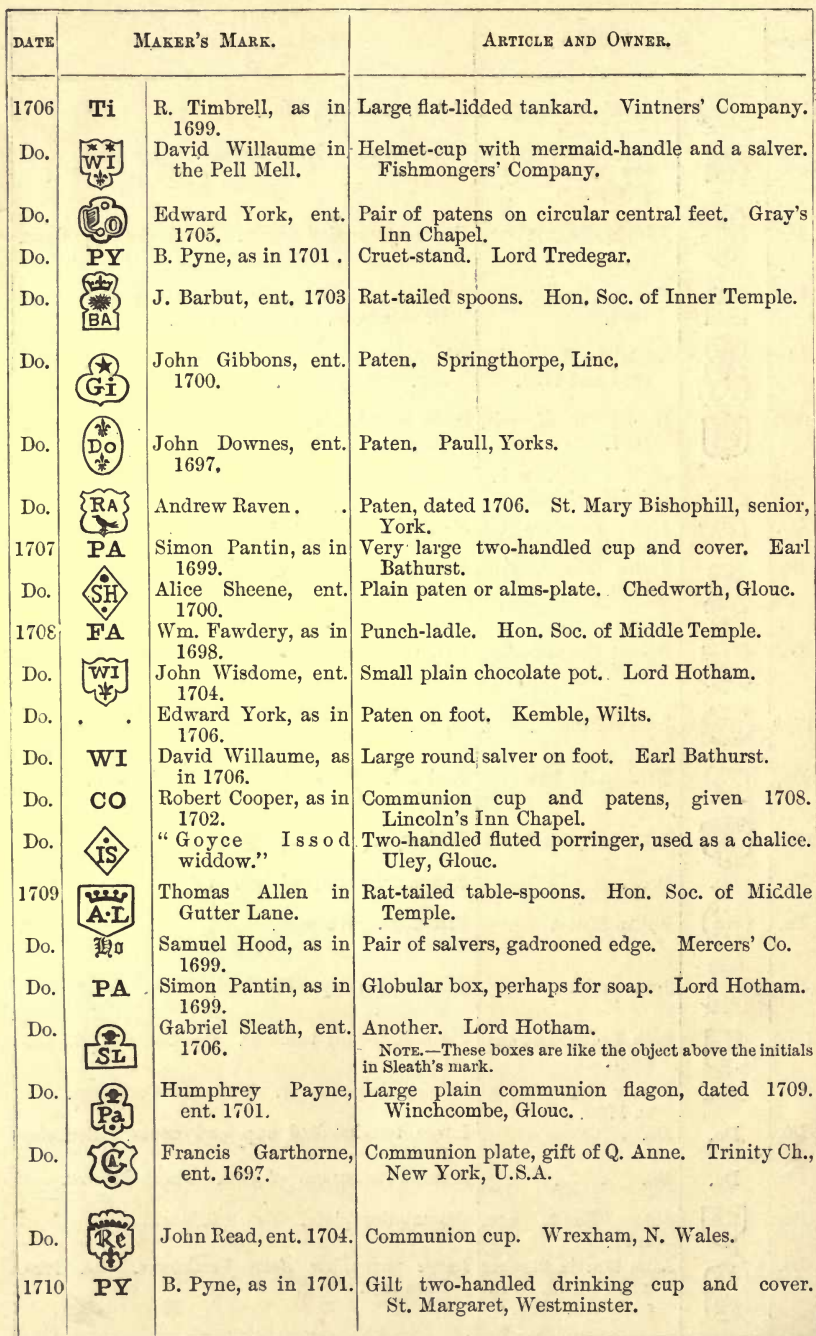 DATE MAKER'S MARK. ARTICLE AND OWNER.
1706 Ti R. Timbrell, as in Large flat-lidded tankard. Vintners' Company.
1699.
Do. WI David Willaume in Helmet-cup with mermaid-handle and a salver.
the Pell Mell. Fishmongers' Company.
Do. Edward York, ent. Pair of patens on circular central feet. Gray's
1705. Inn Chapel.
Do. PY B. Pyne, as in 1701 . Cruet-stand. Lord Tredegar.
Do. BA J. Barbut, ent. 1703 Rat-tailed spoons. Hon. Soc. of Inner Temple.
Do. Gi John Gibbons, ent. Paten. Springthorpe, Linc.
1700.
Do. Do John Downes, ent. Paten. Paull, Yorks.
1697.
Do. RA Andrew Raven . . Paten, dated 1706. St. Mary Bishophill, senior,
York.
1707 PA Simon Pantin, as in Very large two-handled cup and cover. Earl
1699. Bathurst.
Do. SH Alice Sheene, ent. Plain paten or alms-plate. Chedworth, Glouc.
1700.
1708 FA Wm. Fawdery, as in Punch-ladle. Hon. Soc. of Middle Temple.
1698.
Do. WI John Wisdome, ent. Small plain chocolate pot. Lord Hotham.
1704.
Do. . . Edward York, as in Paten on foot. Kemble, Wilts.
1706.
Do. WI David Willaume, as Large round salver on foot. Earl Bathurst.
in 1706.
Do. CO Robert Cooper, as in Communion cup and patens, given 1708.
1702. Lincoln's Inn Chapel.
Do. IS "Goyce Issod Two-handled fluted porringer, used as a chalice.
widdow." Uley, Glouc.
1709 A·L Thomas Allen in Rat-tailed table-spoons. Hon. Soc. of Middle
Gutter Lane. Temple.
Do. Ho Samuel Hood, as in Pair of salvers, gadrooned edge. Mercers' Co.
1699.
Do. PA Simon Pantin, as in Globular box, perhaps for soap. Lord Hotham.
1699.
Do. SL Gabriel Sleath, ent. Another. Lord Hotham.
1706. NOTE.—These boxes are like the object above the initials
in Sleath's mark.
Do. Pa Humphrey Payne, Large plain communion flagon, dated 1709.
ent. 1701. Winchcombe, Glouc.
Do. Francis Garthorne, Communion plate, gift of Q. Anne. Trinity Ch.,
ent. 1697. New York, U.S.A.
Do. Re John Read, ent. 1704. Communion cup. Wrexham, N. Wales.
1710 PY B. Pyne, as in 1701. Gilt two-handled drinking cup and cover.
St. Margaret, Westminster.